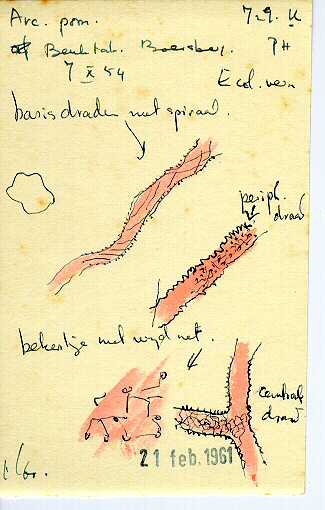 Arc. pom.
Boersberg.
7 X 54
Ecol. vern
basisdraden met spiraal.
periph.
draad
bekertje met wijd net.
centrale
draad
21 feb. 1961